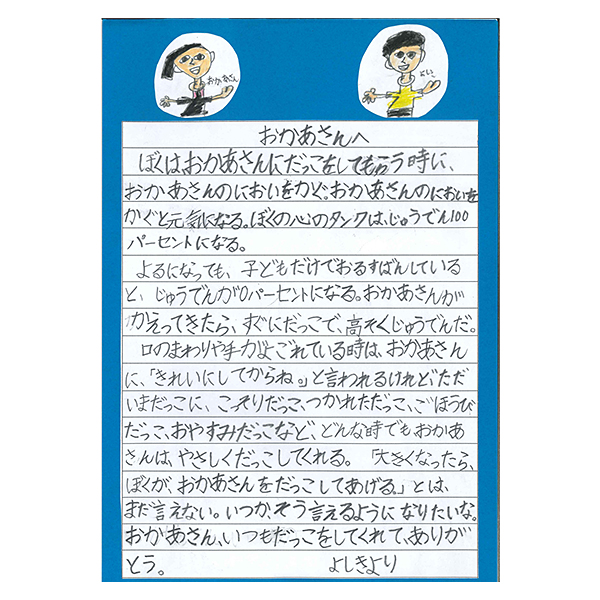 おかあさん
よしき
おかあさんへ
ぼくはおかあさんにだっこをしてもらう時に、
おかあさんのにおいをかぐ。おかあさんのにおいを
かぐと元気になる。ぼくの心のタンクは、じゅうでん100
パーセントになる。
よるになっても、子どもだけでおるすばんしている
と、じゅうでんが0パーセントになる。おかあさんが
かえってきたら、すぐにだっこで、高そくじゅうでんだ。
口のまわりや手がよごれている時は、おかあさん
に、「きれいにしてからね。」と言われるけれど、ただ
いまだっこに、こっそりだっこ、つかれただっこ、ごほうび
だっこ、おやすみだっこなど、どんな時でもおかあ
さんは、やさしくだっこしてくれる。「大きくなったら、
ぼくが、おかあさんをだっこしてあげる。」とは、
まだ言えない。いつか、そう言えるようになりたいな。
おかあさん、いつもだっこをしてくれて、ありが
とう。 よしきより